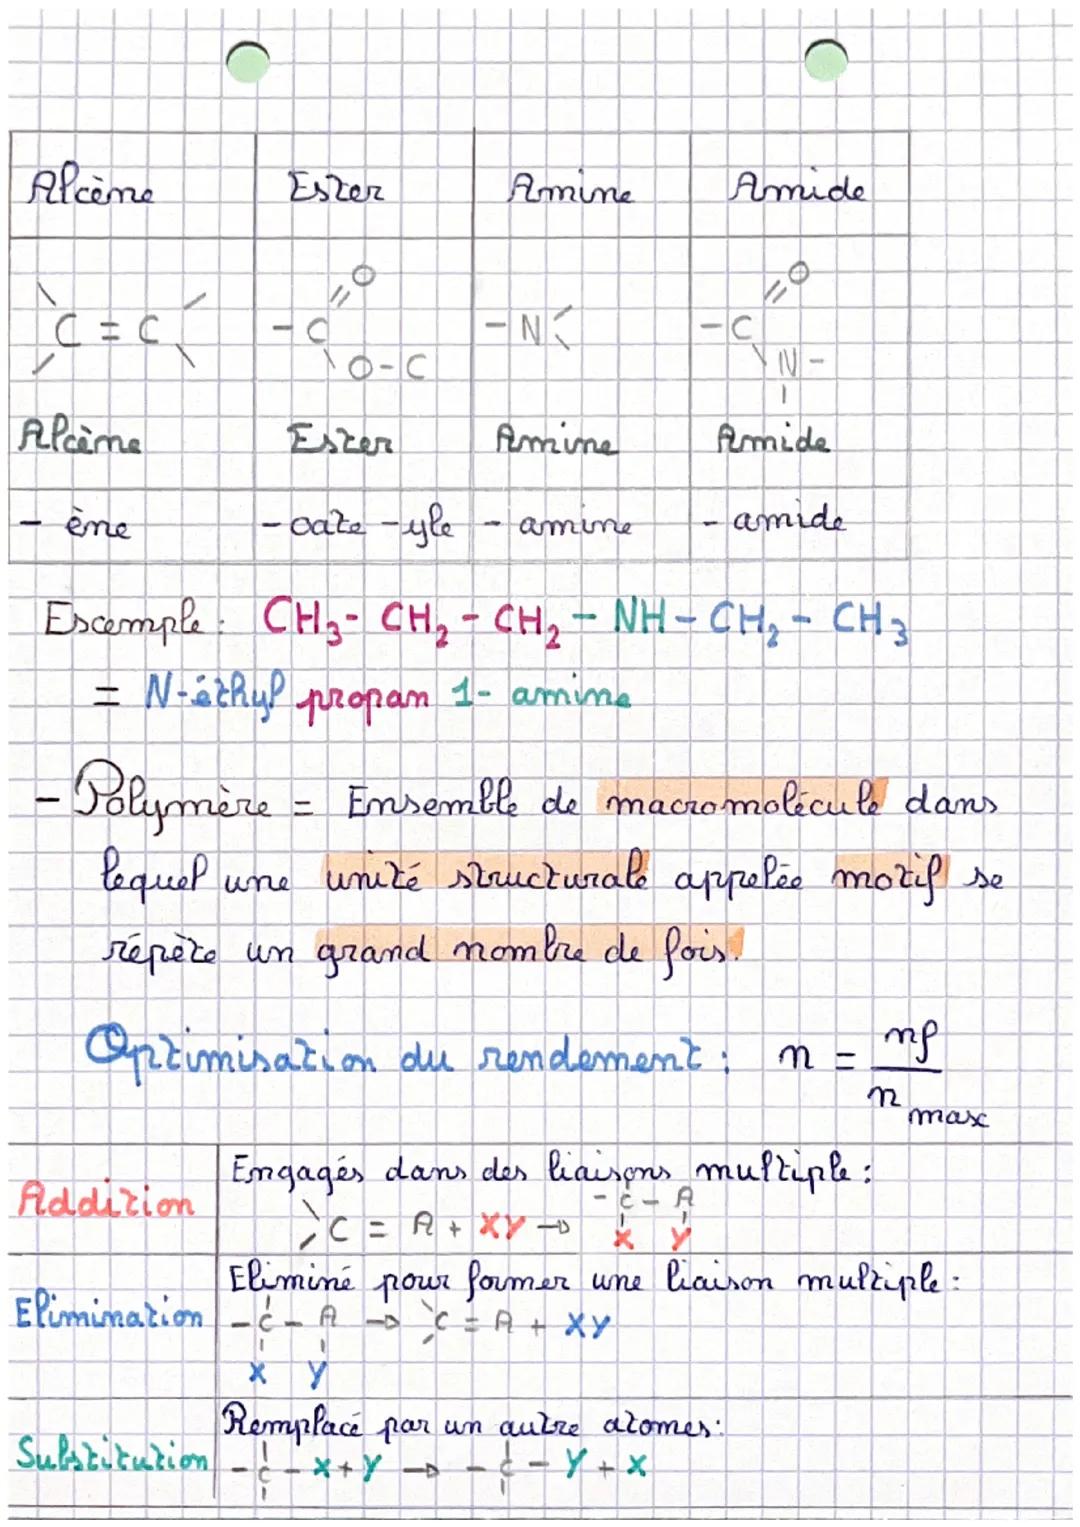 Alcène Ester Amine Amide
C = C -C=O O-C -N -C=O N-
Alcène Ester Amine Amide
- ène -oate -yle - amine - amide
Exemple : CH3- CH2 - CH2 - NH - CH2 - CH3
= N-éthyl propan 1- amine
- Polymère = Ensemble de macromolécule dans
lequel une unité structurale appelée motif se
répète un grand nombre de fois.
Optimisation du rendement : n = nf / n max
Addition
Engagés dans des liaisons multiple :
C = A + XY → - C - A X Y
Elimination
Eliminé pour former une liaison multiple :
- C - A → C = A + XY
X Y
Substitution
Remplacé par un autre atomes:
- C - X + Y → - C - Y + X